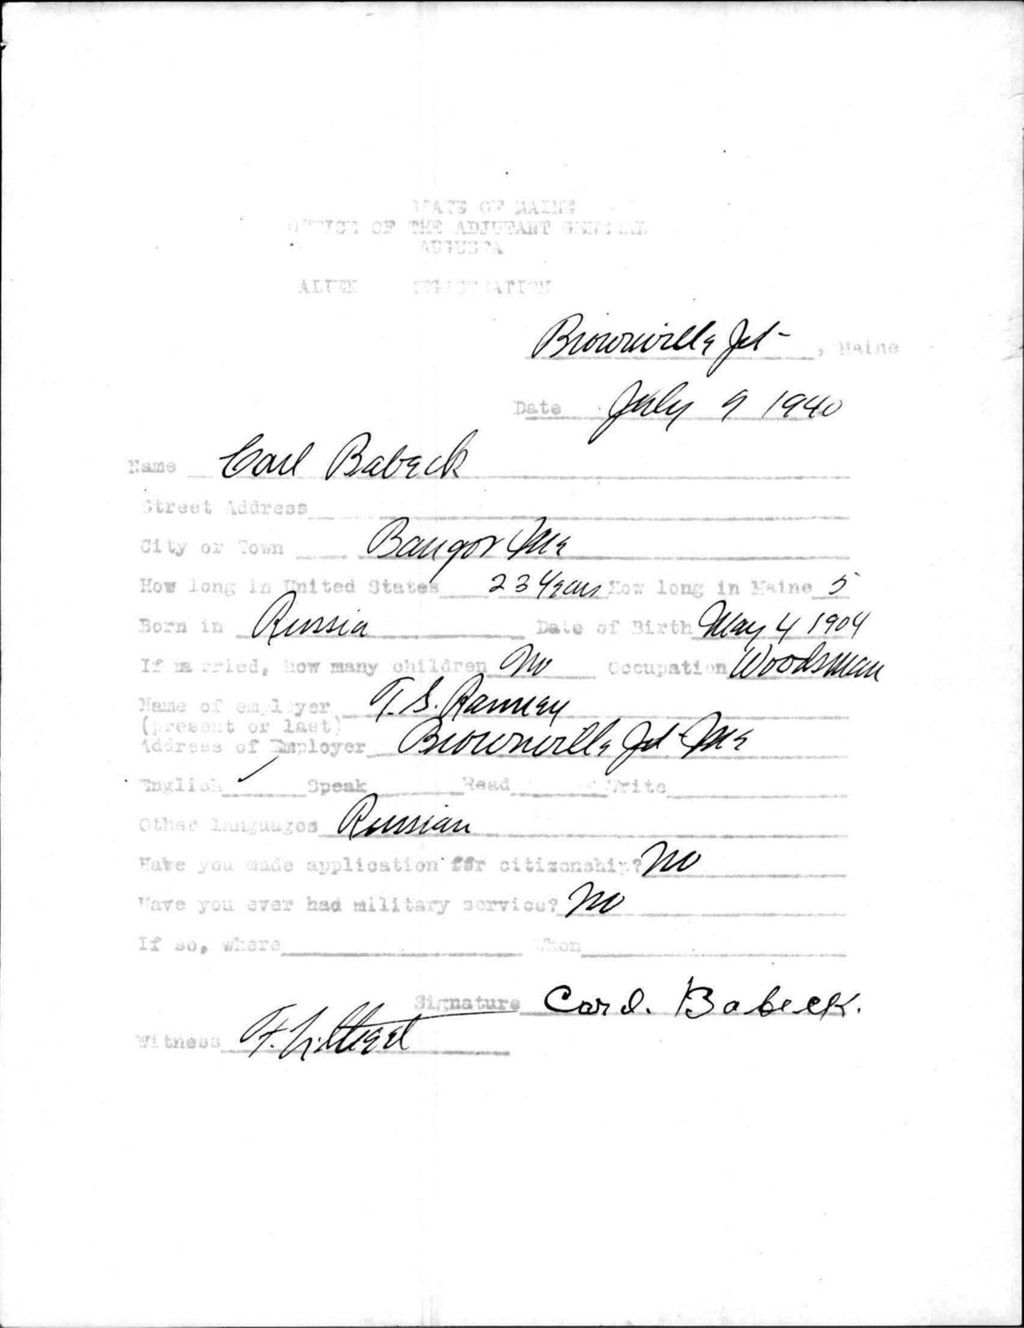 STATE OF MAINE
OFFICE OF THE ADJUTANT GENERAL
AUGUSTA
ALIEN REGISTRATION
Brownville Jct , Maine
Date July 9 1940
Name Carl Babeck
Street Address
City or Town Bangor Me
How long in United States 23 Years How long in Maine 5
Born in Russia Date of Birth May 4 1904
If married, how many children No Occupation Woodsman
Name of employer T.S. Ranney
(present or last)
Address of Employer Brownville Jct Me
English Speak Read Write
Other languages Russian
Have you made application for citizenship? No
Have you ever had military service? No
If so, where When
Signature Carl. Babeck.
Witness F.